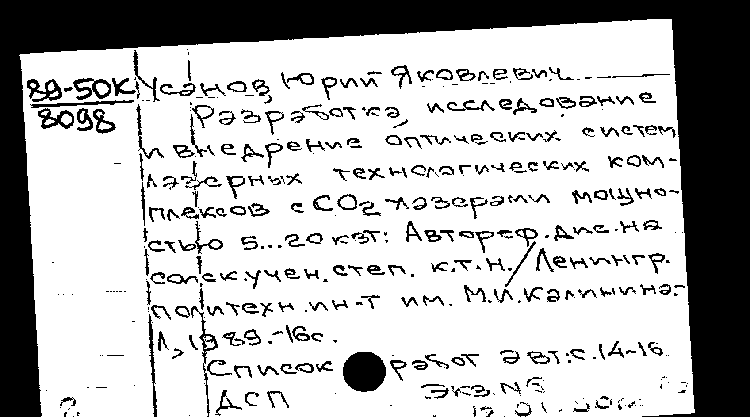 89-50К Усанов, Юрий Яковлевич
8098 Разработка, исследование
и внедрение оптических систем
лазерных технологических ком-
плексов с CO2 лазерами мощно-
стью 5...20 квт: Автореф. дис. на
соиск. учен. степ. к.т.н. / Ленингр.
политехн. ин-т им. М.И. Калинина.-
Л., 1989.-16с.
Список работ авт.: с.14-16
ДСП Экз. №